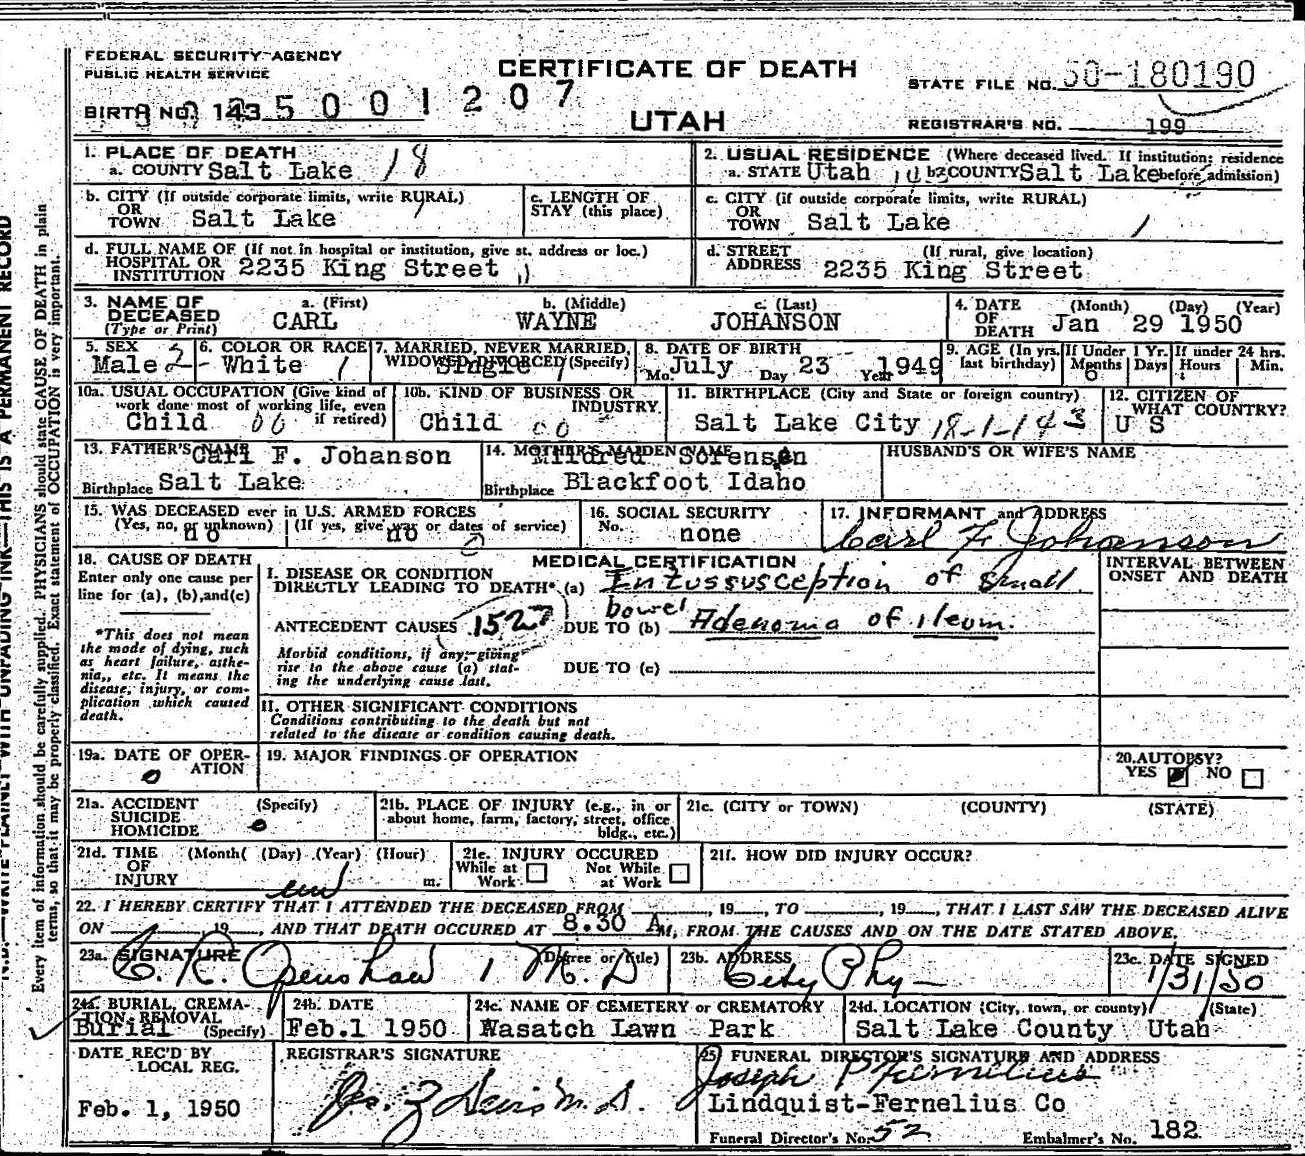 FEDERAL SECURITY AGENCY
PUBLIC HEALTH SERVICE
CERTIFICATE OF DEATH
UTAH
STATE FILE NO. 50-180190
BIRTH NO. 143 5001207
REGISTRAR'S NO. 199
1. PLACE OF DEATH
a. COUNTY Salt Lake 18
2. USUAL RESIDENCE (Where deceased lived. If institution: residence
a. STATE Utah b. COUNTY Salt Lake before admission)
b. CITY (If outside corporate limits, write RURAL)
OR
TOWN Salt Lake
c. LENGTH OF
STAY (this place)
c. CITY (if outside corporate limits, write RURAL)
OR
TOWN Salt Lake 1
d. FULL NAME OF (If not in hospital or institution, give st. address or loc.)
HOSPITAL OR
INSTITUTION 2235 King Street
d. STREET (If rural, give location)
ADDRESS 2235 King Street
3. NAME OF a. (First) b. (Middle) c. (Last)
DECEASED
(Type or Print) CARL WAYNE JOHANSON
4. DATE (Month) (Day) (Year)
OF
DEATH Jan 29 1950
5. SEX
Male 2
6. COLOR OR RACE
White 1
7. MARRIED, NEVER MARRIED,
WIDOWED DIVORCED (Specify)
Single 1
8. DATE OF BIRTH
Mo. July Day 23 Year 1949
9. AGE (In yrs. last birthday)
If Under 1 Yr.
Months 6 Days
If under 24 hrs.
Hours Min.
10a. USUAL OCCUPATION (Give kind of
work done most of working life, even
if retired)
Child 00
10b. KIND OF BUSINESS OR
INDUSTRY
Child 00
11. BIRTHPLACE (City and State or foreign country)
Salt Lake City 18-1-143
12. CITIZEN OF
WHAT COUNTRY?
U S
13. FATHER'S NAME
Carl F. Johanson
Birthplace Salt Lake
14. MOTHER'S MAIDEN NAME
Mildred Sorensen
Birthplace Blackfoot Idaho
HUSBAND'S OR WIFE'S NAME
15. WAS DECEASED ever in U.S. ARMED FORCES
(Yes, no, or unknown) (If yes, give war or dates of service)
no no
16. SOCIAL SECURITY
No. none
17. INFORMANT and ADDRESS
Carl F. Johanson
18. CAUSE OF DEATH
Enter only one cause per
line for (a), (b), and (c)
*This does not mean
the mode of dying, such
as heart failure, asthe-
nia, etc. It means the
disease, injury, or com-
plication which caused
death.
MEDICAL CERTIFICATION
I. DISEASE OR CONDITION
DIRECTLY LEADING TO DEATH* (a) Intussusception of small
bowel
ANTECEDENT CAUSES 1527 DUE TO (b) Adenoma of ileum.
Morbid conditions, if any, giving
rise to the above cause (a) stat-
ing the underlying cause last.
DUE TO (c)
II. OTHER SIGNIFICANT CONDITIONS
Conditions contributing to the death but not
related to the disease or condition causing death.
INTERVAL BETWEEN
ONSET AND DEATH
19a. DATE OF OPER-
ATION
0
19. MAJOR FINDINGS OF OPERATION
20. AUTOPSY?
YES NO
21a. ACCIDENT (Specify)
SUICIDE
HOMICIDE 0
21b. PLACE OF INJURY (e.g., in or
about home, farm, factory, street, office
bldg., etc.)
21c. (CITY or TOWN) (COUNTY) (STATE)
21d. TIME (Month( (Day) (Year) (Hour)
OF
INJURY m.
21e. INJURY OCCURED
While at Not While
Work at Work
21f. HOW DID INJURY OCCUR?
22. I HEREBY CERTIFY THAT I ATTENDED THE DECEASED FROM , 19 , TO , 19 , THAT I LAST SAW THE DECEASED ALIVE
ON , 19 , AND THAT DEATH OCCURED AT 8.30 A M, FROM THE CAUSES AND ON THE DATE STATED ABOVE.
23a. SIGNATURE (Degree or title)
C. R. Openshaw M. D
23b. ADDRESS
City Phy
23c. DATE SIGNED
1/31/50
24a. BURIAL, CREMA-
TION, REMOVAL
Burial (Specify)
24b. DATE
Feb.1 1950
24c. NAME OF CEMETERY or CREMATORY
Wasatch Lawn Park
24d. LOCATION (City, town, or county) (State)
Salt Lake County Utah
DATE REC'D BY
LOCAL REG.
Feb. 1, 1950
REGISTRAR'S SIGNATURE
25. FUNERAL DIRECTOR'S SIGNATURE AND ADDRESS
Joseph P Fernelius
Lindquist-Fernelius Co
Funeral Director's No. 52 Embalmer's No. 182
N.B.—WRITE PLAINLY WITH UNFADING INK—THIS IS A PERMANENT RECORD
Every item of information should be carefully supplied. PHYSICIANS should state CAUSE OF DEATH in plain
terms, so that it may be properly classified. Exact statement of OCCUPATION is very important.